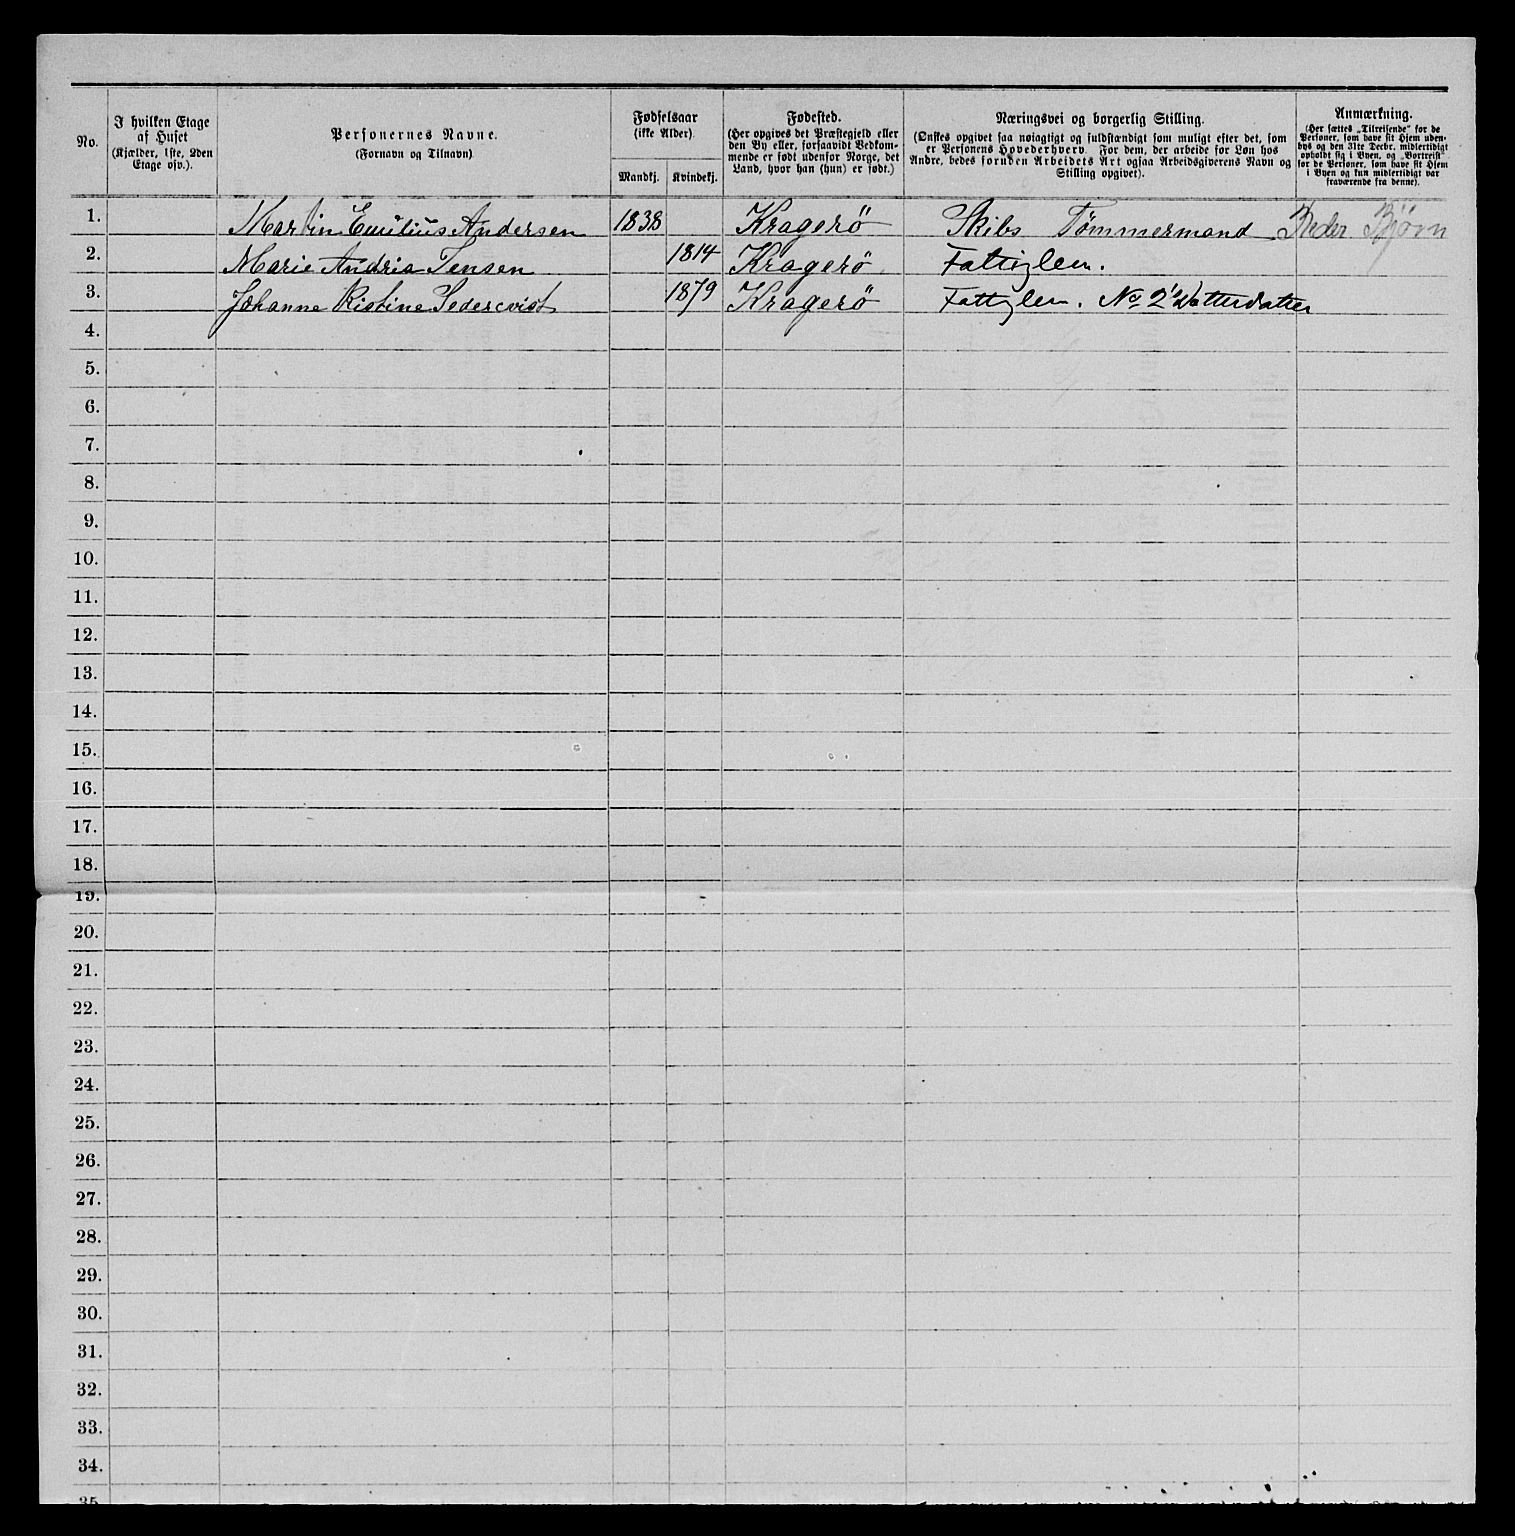 No.
I hvilken Etage af Huset (Kjælder, 1ste, 2den Etage osv.).
Personernes Navne. (Fornavn og Tilnavn)
Fødselsaar (ikke Alder).
Mandkj. Kvindekj.
Fødested. (Her opgives det Præstegjeld eller den By eller, forsaavidt Vedkommende er født udenfor Norge, det Land, hvor han (hun) er født.)
Næringsvei og borgerlig Stilling. (Ønskes opgivet saa nøiagtigt og fuldstændigt som muligt efter det, som er Personens Hovederhverv. For dem, der arbeide for Løn hos Andre, bedes foruden Arbeidets Art ogsaa Arbeidsgiverens Navn og Stilling opgivet).
Anmærkning. (Her sættes „Tilreisende" for de Personer, som have sit Hjem udenbys og den 31te Decbr. midlertidigt opholdt sig i Byen, og „Bortreist" for de Personer, som have sit Hjem i Byen og kun midlertidigt var fraværende fra denne).
1. Martin Emilius Andersen 1838 Kragerö Skibs Tömmermand Reder Björn
2. Marie Andria Jensen 1814 Kragerö Fattiglem.
3. Johanne Kistine Sedercvist 1879 Kragerö Fattiglem. No 2' Datterdatter
4.
5.
6.
7.
8.
9.
10.
11.
12.
13.
14.
15.
16.
17.
18.
19.
20.
21.
22.
23.
24.
25.
26.
27.
28.
29.
30.
31.
32.
33.
34.
35